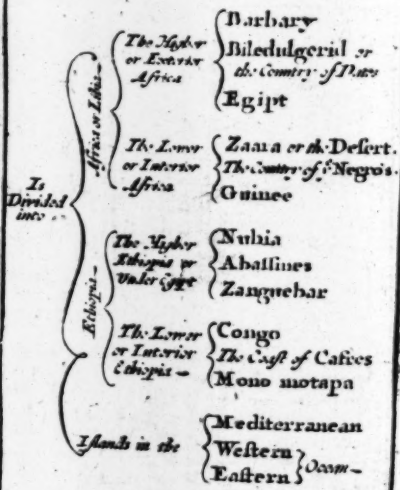 Is
Divided
into
Africa or Libia
The Higher
or Exterior
Africa
Barbary
Biledulgerid or
the Country of Dates
Egipt
The Lower
or Interior
Africa
Zaara or the Desert.
The Country of yᵉ Negro's.
Guinee
Ethiopia
The Higher
Ethiopia or
Under Egypt
Nubia
Abassines
Zanguebar
The Lower
or Interior
Ethiopia
Congo
The Coast of Cafres
Mono motapa
Islands in the
Mediterranean
Western
Eastern
Ocean